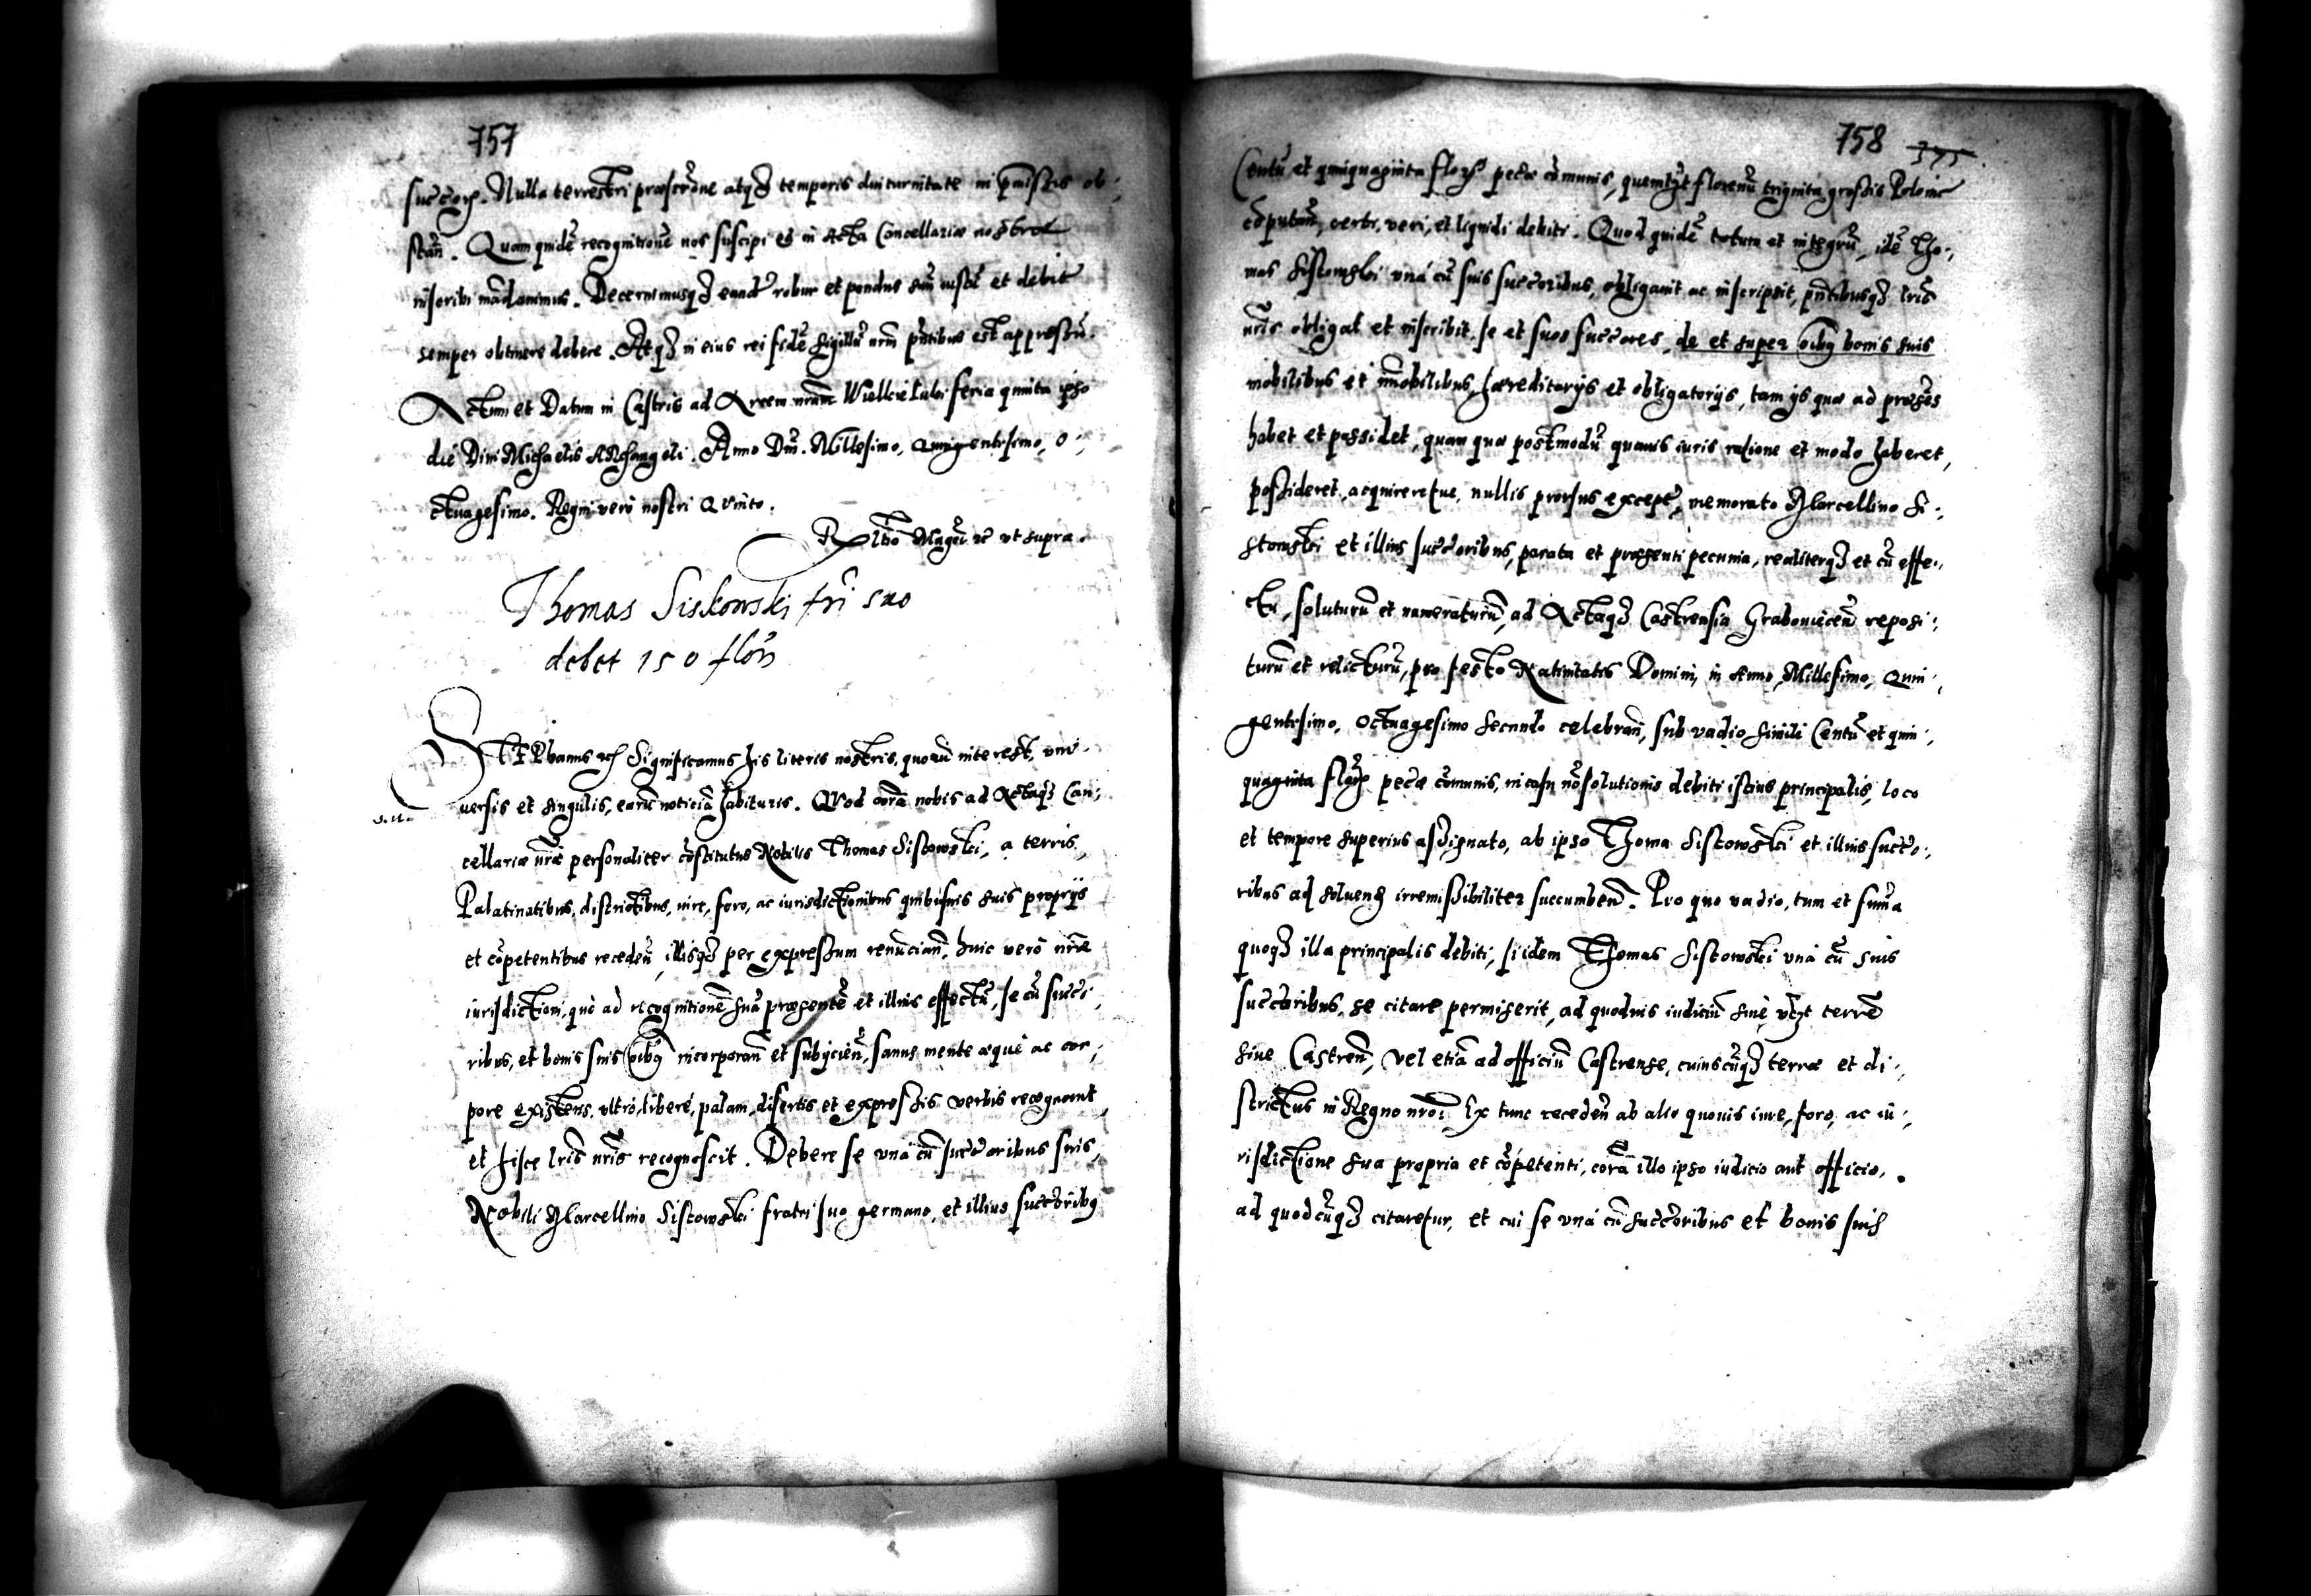 757
succorꝝ. Nulla terrestri præscr͞one atqꝫ temporis diuturnitate in p͞missis ob:
stañ. Quam quidē recognitionē nos suscipi et in Acta Cancellariæ nostræ
inscribi mãdauimus. Decernimusqꝫ eandē robur et pondus suũ iustũ et debitũ
semper obtinere debere. Atqꝫ in eius rei fidē Sigillũ nrm̃ pñtibus est appressũ.
Actum et Datum in Castris ad Arcem nrãm Wielkieluki feria quinta ipso
die Diui Michaelis ARchangeli. Anno Dñi. Millesimo, Quingentesimo, o:
ctuagesimo. Regni vero nostri Quinto.
Rełtio Magci rc̃ vt supra.
Thomas Siskowski fri suo
debet 150 flós
STEPhanus rcꝫ Significamus his literis nostris, quorũ interest, vni:
uersis et singulis, earũ noticiã habituris. QVod corã nobis ad Actaqꝫ Can:
cellariæ nr̃æ personaliter cõstitutus Nobilis Thomas Sistowski, a terris,
Palatinatibus, districtibus, iure, foro, ac iurisdictionibus quibusuis suis proprijs
et cõpetentibus recedeñ, illisqꝫ per expressum renũciañ, huic verò nrãe
iurisdictioni, quò ad recognitionē suã præsentē et illius effectũ, se cũ succo:
ribus, et bonis suis oĩbꝫ incorporañ et subijcieñ, sanus mente æquè ac cor:
pore existens, vltrò, liberè, palam, disertis et expressis verbis recognouit
et hisce lr̃is nr̃is recognoscit. Debere se vnà cũ succoribus suis,
Nobili Marcellino Sistowski fratri suo germano, et illius succoribꝫ
758
375
Centũ et quinquaginta florꝝ pecũæ cõmunis, quemlꝫt florenũ triginta grossis Polonic̃
cõputañ, certi, veri, et liquidi debiti. Quod quidē totum et integrũ, idē Tho:
mas Sistowski vnà cũ suis succoribus, obligauit ac inscripsit, pñtibusqꝫ lr̃is
nr̃is obligat et inscribit. se et suos succores, de et super oĩbꝫ bonis suis
mobilibus et im̃obilibus, hæreditarijs et obligatorijs, tam ijs quæ ad præsẽs
habet et possidet, quam quæ postmodũ quouis iuris ratione et modo haberet,
possideret, acquireretue, nullis prorsus exceptꝭ, memorato Marcellino Si:
stowski et illius succoribus, parata et præsenti pecunia, realiterqꝫ et cũ effe:
ctu, soluturũ et numeraturũ, ad Actaqꝫ Castrensia Graboviecẽñ reposi:
turũ et relicturũ, pro festo Natiuitatis Domini, in Anno, Millesimo, Quin:
gentesimo, Octuagesimo Secundo celebrañ, sub vadio simili Centũ et quin:
quaginta florꝝ pecũæ cõmunis, in casu nõsolutionis debiti istius principalis, loco
et tempore superius assignato, ab ipso Thoma Sistowski et illius succo:
ribus ad soluenꝰ irremissibiliter succumbenꝰ. Pro quo vadio, tum et sum̃a
quoqꝫ illa principalis debiti, si idem Thomas Sistowski vnà cũ suis
succoribus, se citare permiserit, ad quoduis iudiciũ siuè vtꝫt terrẽ
siue Castreñ, vel etiã ad officiũ Castrense, cuiuscũqꝫ terræ et di:
strictus in Regno nr̃o: Ex tunc recedeñ ab alio quouis iure, foro, ac iu:
risdictione sua propria et cõpetenti, corã illo ipso iudicio aut officio,
ad quodcũqꝫ citaretur, et cui se vnà cũ succoribus et bonis suis